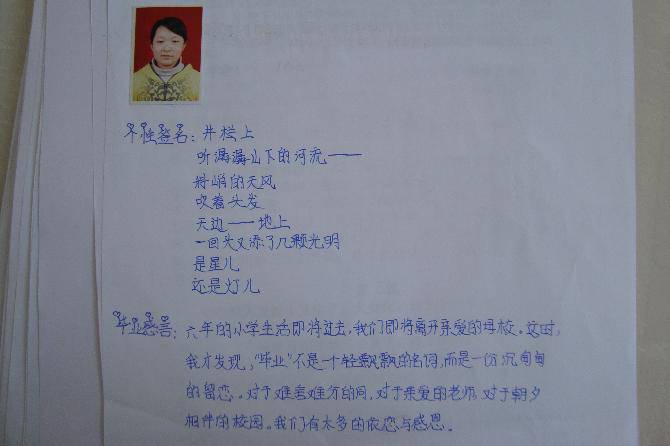 个性签名：井栏上
听潺潺山下的河流——
料峭的天风
吹着头发
天边——地上
一回头又添了几颗光明
是星儿
还是灯儿
毕业感言：六年的小学生活即将过去，我们即将离开亲爱的母校。这时，
我才发现，“毕业”不是一个轻飘飘的名词，而是一份沉甸甸
的留恋。对于难舍难分的同，对于亲爱的老师，对于朝夕
相伴的校园。我们有太多的依恋与感恩。